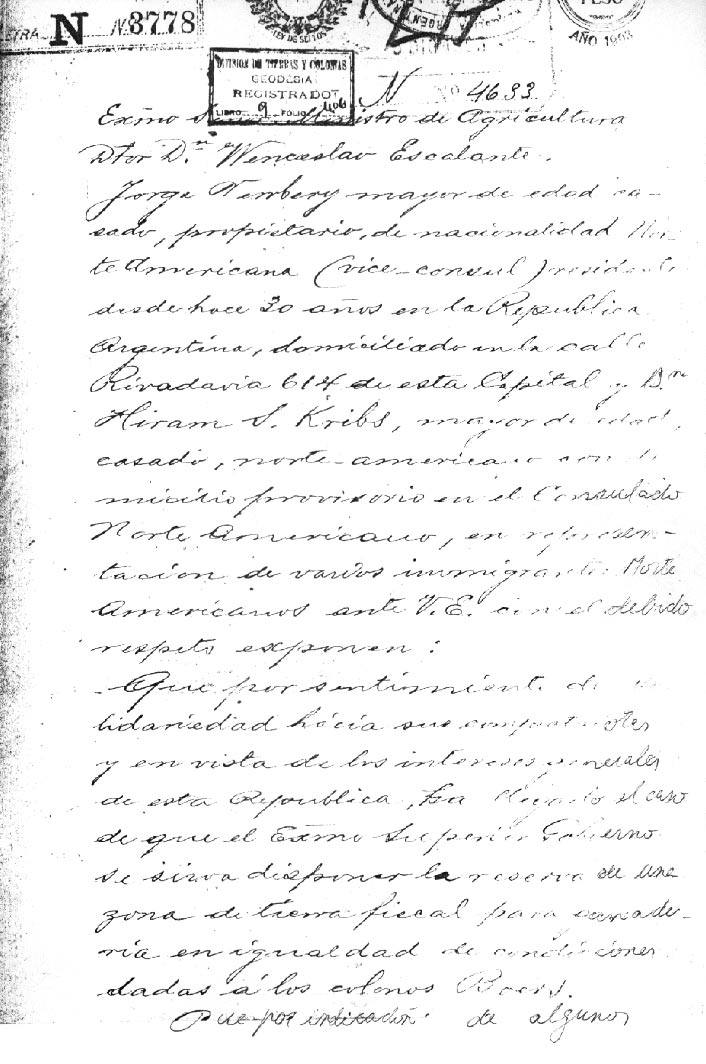 N Nº 3778
PESO
AÑO 1903
DIVISION DE TIERRAS Y COLONIAS
GEODESIA
REGISTRADO
LIBRO 9 FOLIO
N Nº 4633
Exmo Señor Ministro de Agricultura
Dtor Dn Wenceslao Escalante.
Jorge Newbery mayor de edad ca-
sado, propietario, de nacionalidad Nor-
te Americana (vice-consul) residente
desde hace 30 años en la Republica
Argentina, domiciliado en la calle
Rivadavia 614 de esta Capital y Dn
Hiram S. Kribs, mayor de edad,
casado, norte-americano con do
micilio provisorio en el Consulado
Norte Americano, en represen-
tacion de varios inmigrantes Norte
Americanos ante V.E. con el debido
respeto exponen:
Que por sentimiento de so
lidariedad hácia sus compatriotas
y en vista de los intereses generales
de esta Republica, ha llegado el caso
de que el Exmo Superior Gobierno
se sirva disponer la reserva de una
zona de tierra fiscal para ganade-
ria en igualdad de condiciones
dadas á los colonos Boers.
Que por indicación de algunos